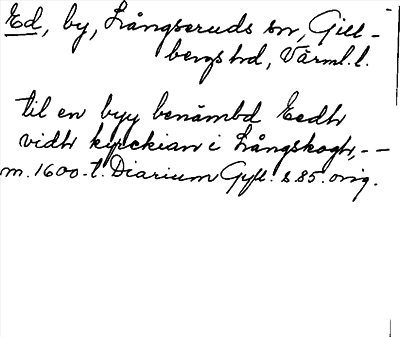 Ed, by, Långseruds sn, Gill-
bergs hd, Värml. l.
til en byy benämbd Eedh
vidh kyrckian i Långskogh, --
m. 1600-t. Diarium Gyll. s 85. orig.